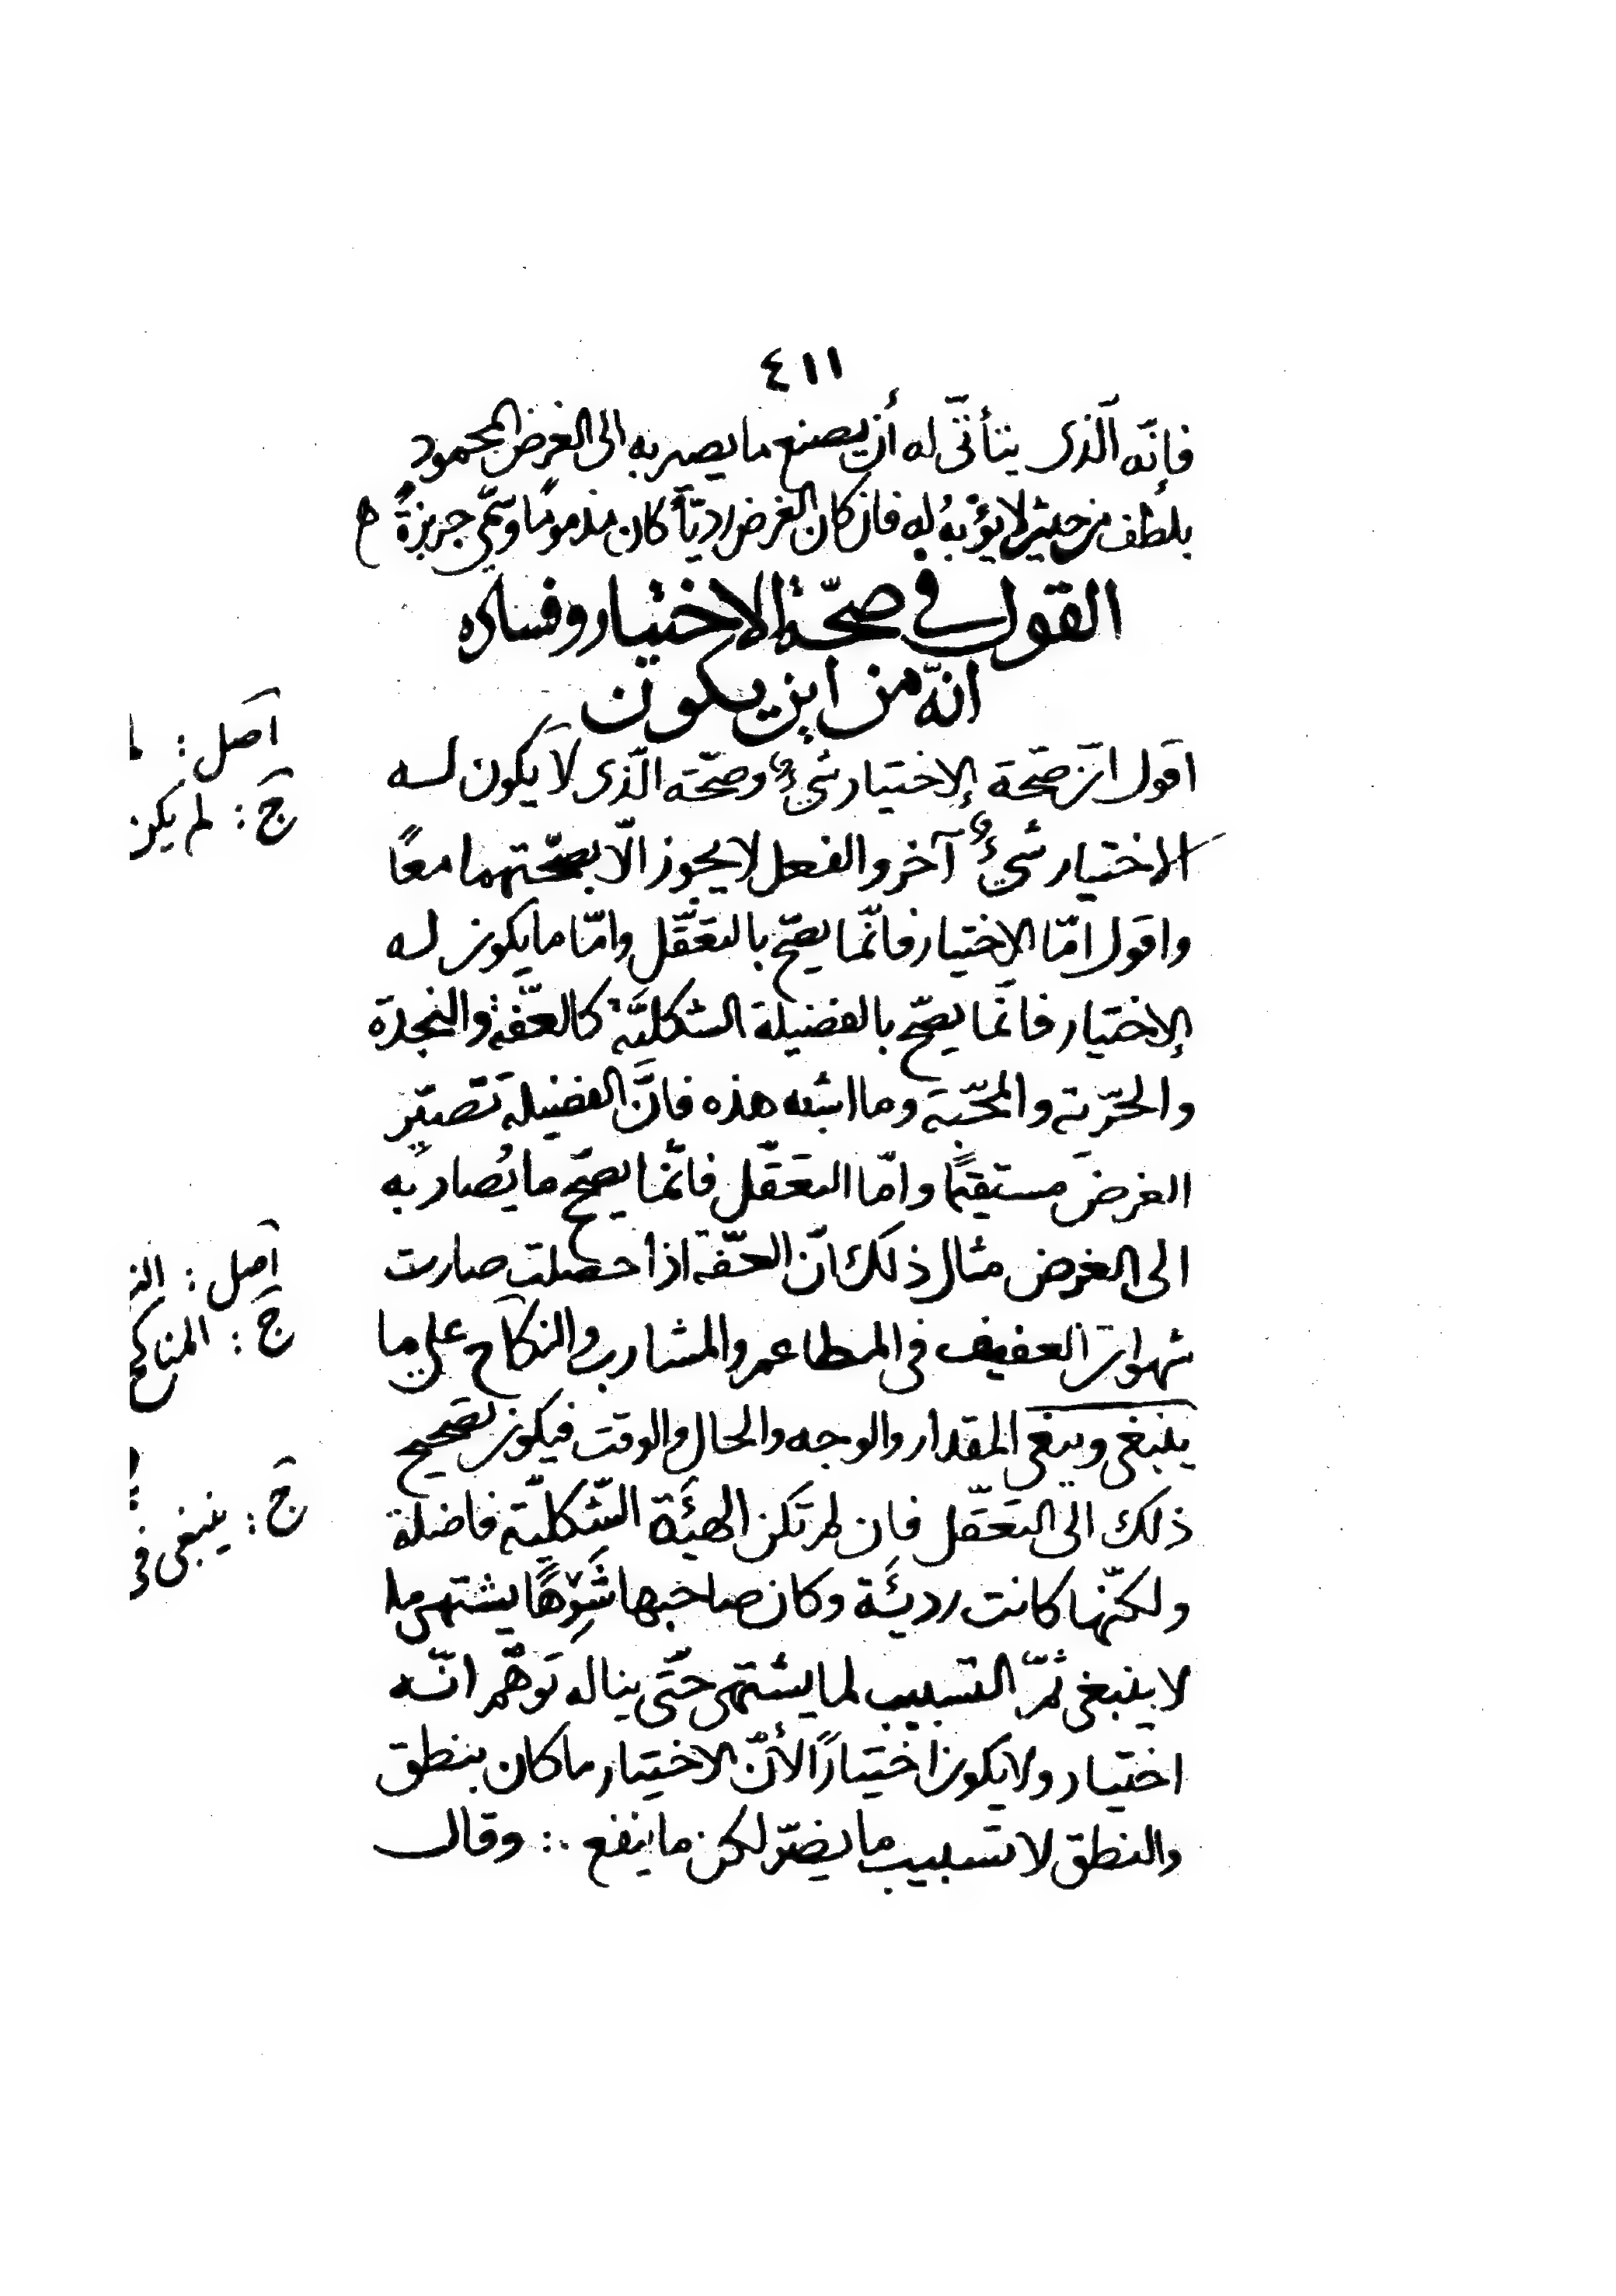 ٤١١
فإنّه الّذى يتأتّى له أن يصنع ما يصير به الى الغرض المحمود
بلطف من حيث لا يؤبه له فان كان الغرض رديّاً كان مذموماً وسمّى جربزةً
القول فى صحّة الاختيار وفساده
انّه من اين يكون
اقول انّ صحّة الاختيار شىءٌ وصحّة الّذى لا يكون له
الاختيار شىءٌ آخر والفعل لا يجوز الّا بصحّتهما معًا
واقول امّا الاختيار فانّما يصحّ بالتعقّل وامّا ما يكون له
الاختيار فانّما يصحّ بالفضيلة الشكليّة كالعفّة والنجدة
والحرّية والمحبّة وما اشبه هذه فانّ الفضيلة تصيّر
الغرض مستقيمًا وامّا التعقّل فانّما يصحّح ما يُصار به
الى الغرض مثال ذلك انّ العفّة اذا حصلت صارت
شهوات العفيف فى المطاعم والمشارب والنكاح على ما
ينبغى ويبغى المقدار والوجه والحال والوقت فيكون تصحيح
ذلك الى التعقّل فان لم تكن الهيئة الشّكليّة فاضلة
ولكنّها كانت رديئة وكان صاحبها شَرِهًا يشتهى ما
لا ينبغى ثمّ التسبيب لما يشتهى حتّى يناله توهّم انّه
اختيار ولا يكون اختيارًا لأنّ الاختيار ما كان بنطق
والنطق لا تسبيب ما يضرّ لكن ما ينفع ∴ وقال
اصل :
ج : لم يكن
اصل :
ج : المناكح
ج : ينبغى فى